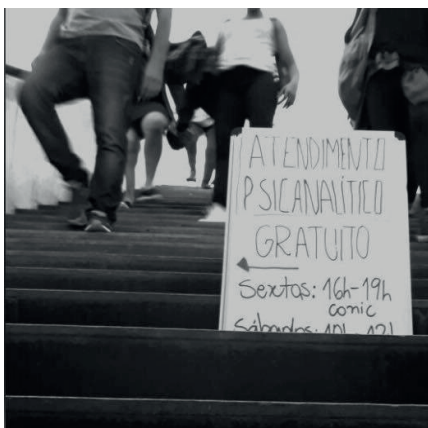 ATENDIMENTO
PSICANALÍTICO
GRATUITO
Sextas: 16h-19h
conic
Sábados: